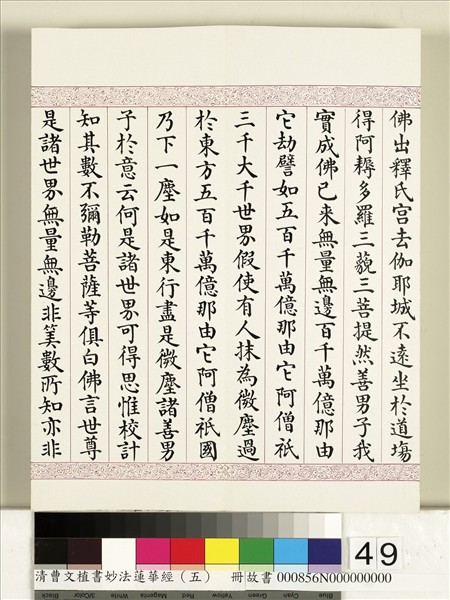 佛出釋氏宮去伽耶城不遠坐於道場
得阿耨多羅三藐三菩提然善男子我
實成佛已來無量無邊百千萬億那由
它劫譬如五百千萬億那由它阿僧祇
三千大千世界假使有人抹為微塵過
於東方五百千萬億那由它阿僧祇國
乃下一塵如是東行盡是微塵諸善男
子於意云何是諸世界可得思惟校計
知其數不彌勒菩薩等俱白佛言世尊
是諸世界無量無邊非筭數所知亦非
49
清曹文植書妙法蓮華經（五） 冊故書 000856N000000000
Black 3/Color White Magenta Red Yellow Green Cyan Blue